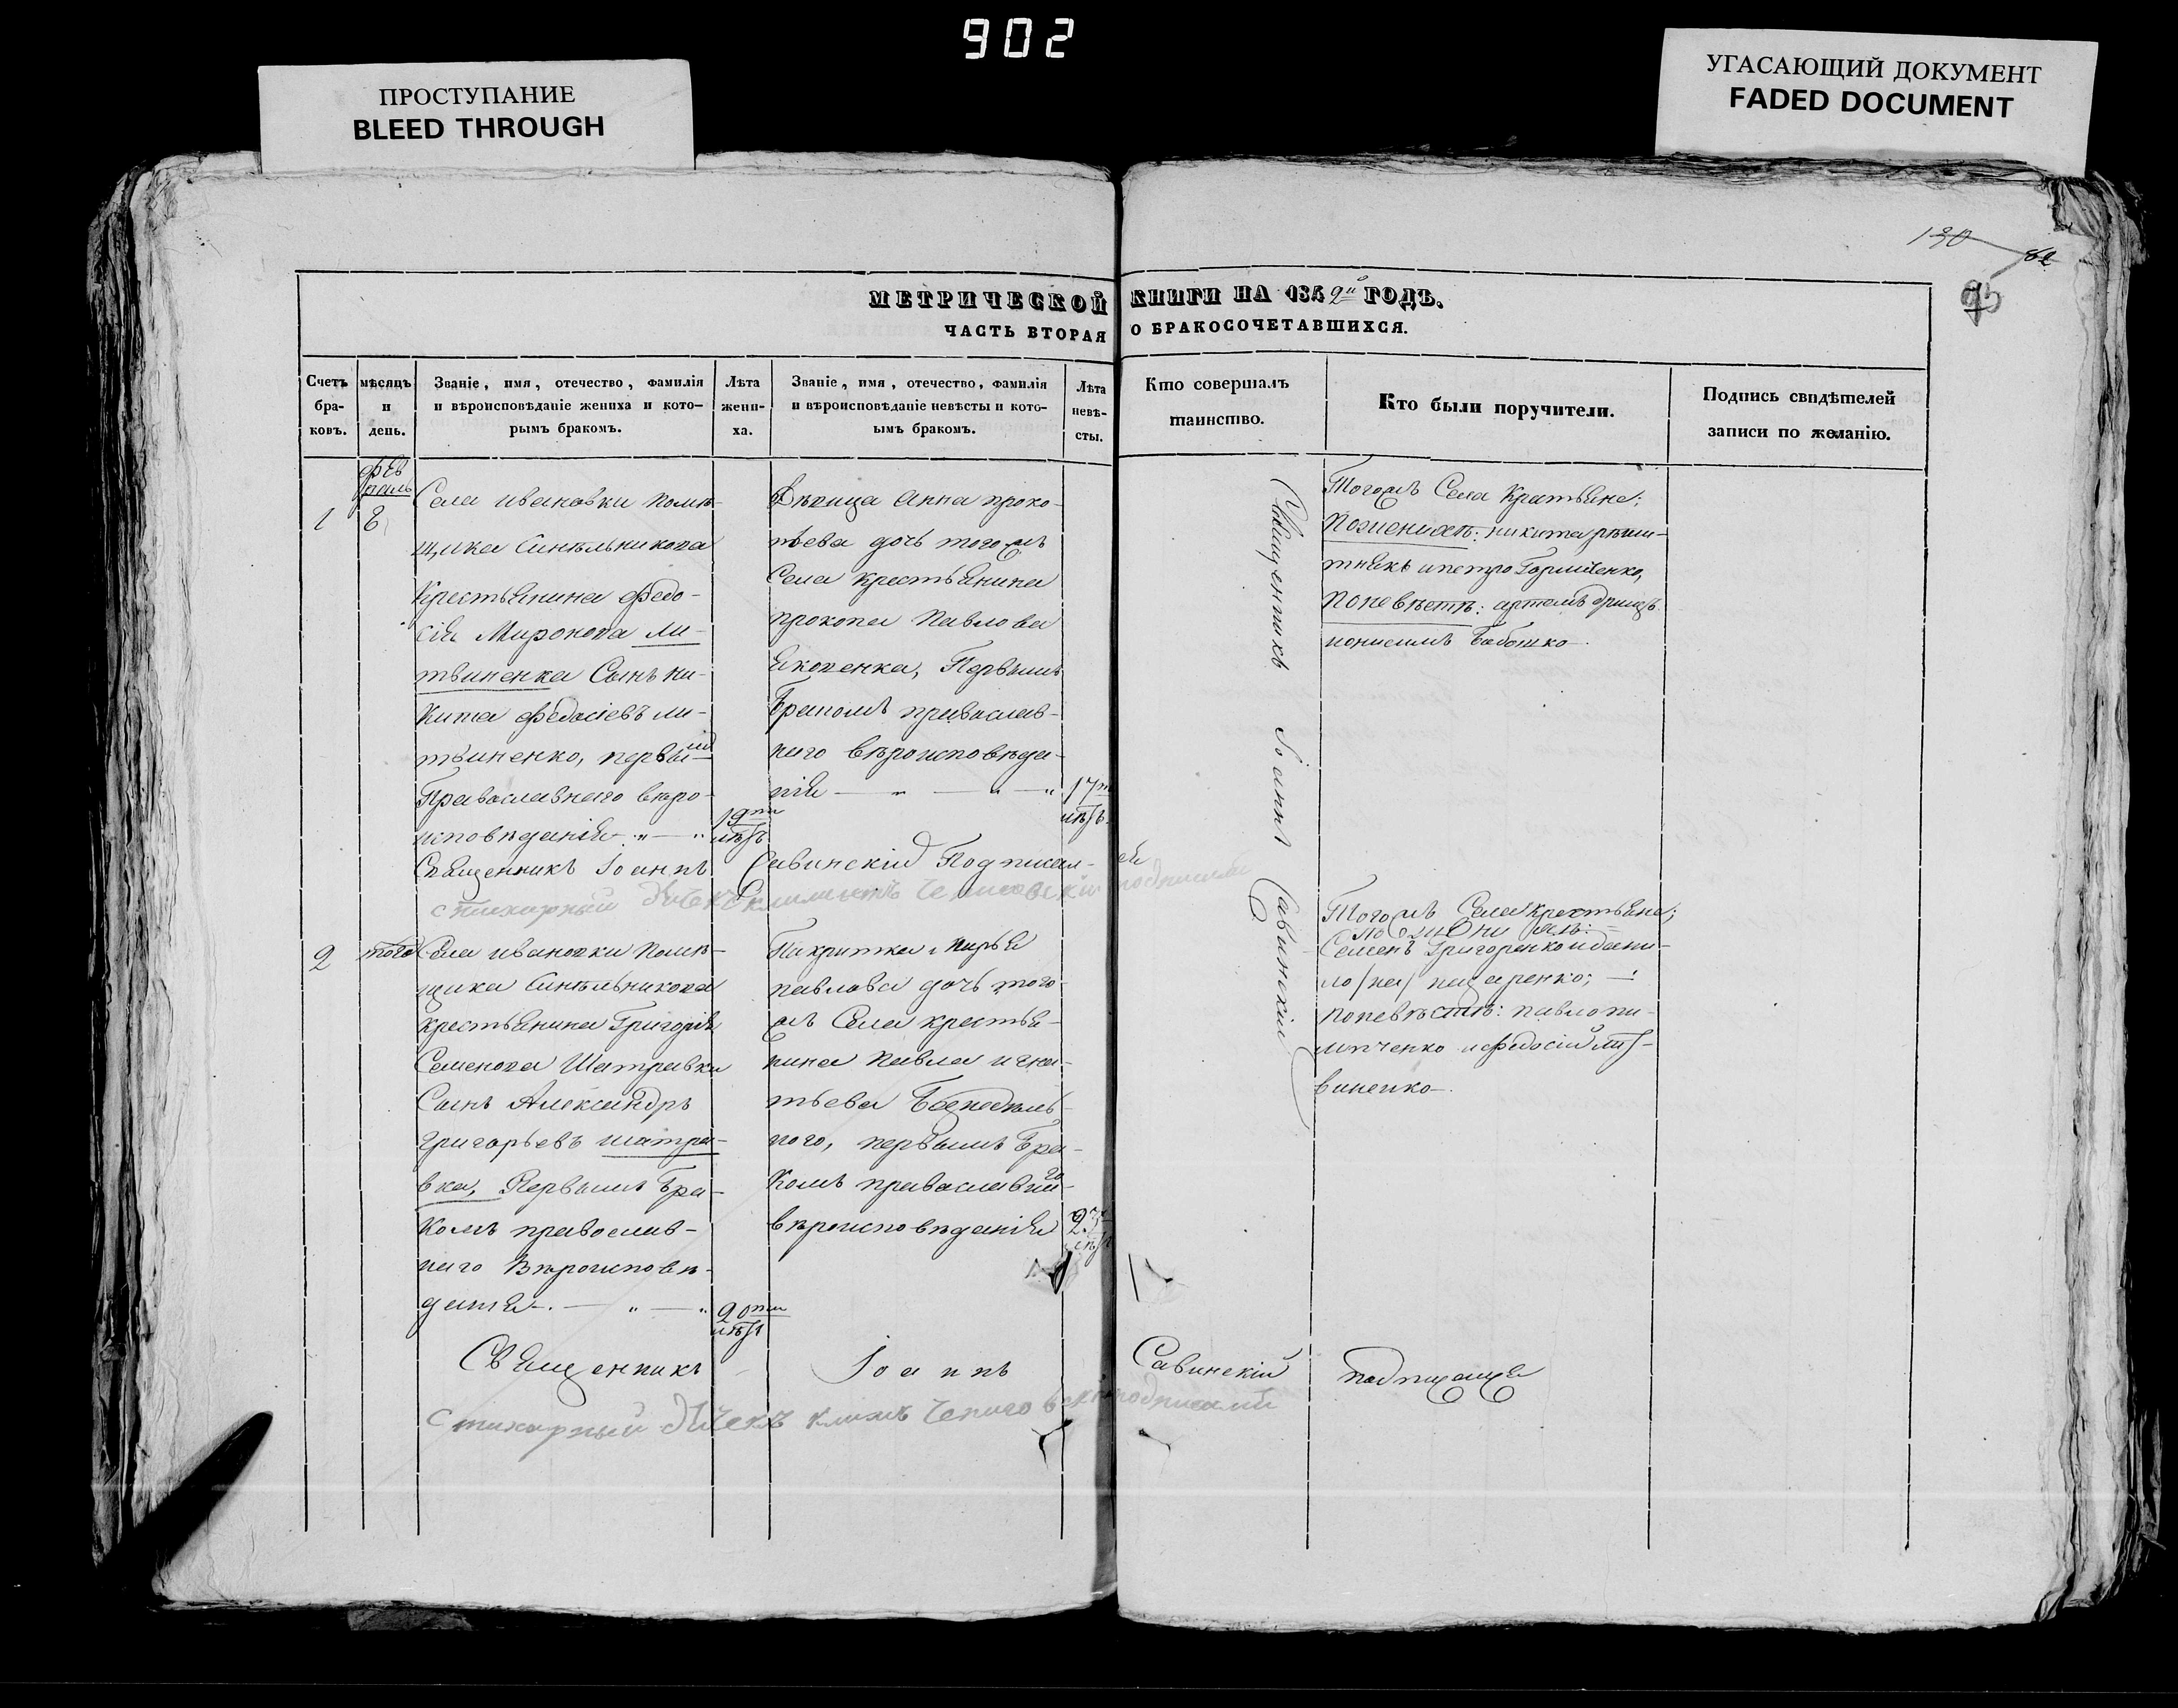 902
ПРОСТУПАНИЕ
BLEED THROUGH
УГАСАЮЩИЙ ДОКУМЕНТ
FADED DOCUMENT
130
МЕТРИЧЕСКОЙ КНИГИ НА 1842й ГОДЪ.
ЧАСТЬ ВТОРАЯ О БРАКОСОЧЕТАВШИХСЯ.
Счетъ бра-ковъ.
мѣсяцъ и день.
Званіе, имя, отечество, фамилія
и вѣроисповѣданіе жениха и кото-
рымъ бракомъ.
Лѣта
жени-
ха.
Званіе, имя, отечество, фамилія
и вѣроисповѣданіе невѣсты и кото-
ымъ бракомъ.
Лѣта
невѣ-
сты.
Кто совершалъ
таинство.
Кто были поручители.
Подпись свидѣтелей
записи по желанію.
1
фев
раль
8
Села ивановки помѣ-
щика Синѣльникова
Крестьянина федо-
сія Миронова ли-
твиненка Сынъ ни-
кита федосіевъ ли-
твиненко, первый
Православнаго вѣро-
исповѣданія
19ти
лѣтъ
Дѣвица Анна проко-
пьева дочь того жъ
Села крестьянина
прокопа Павлова
Яковенка, Первымъ
Бракомъ православ-
наго вѣроисповѣда-
нія
17ти
лѣтъ
Священникъ Іоаннъ Савинскій
Тогожъ Села Кратьяне;
Поженихѣ: никита рѣши-
тнякъ ипетро
Поневѣстѣ: артемъ
ионисимъ Бабошко
Священникъ Іоаннъ Савинскій Подписал-ся
стихарный дьячекъ климентъ подписался
2
того
Села ивановки помѣ-
щика Синѣльникова
крестьянина Григорія
Семенова Шатравки
Сынъ Александръ
григорьевъ шатра-
вка, Первымъ Бра-
комъ православ-
наго Вѣроисповѣ-
данія
20ти
лѣтъ
Марья
павлова дочь того
жъ Села крестья-
нина Павла игна-
тьева
ного, первымъ Бра-
комъ православнаго
вѣроисповѣданія
23
лѣтъ
Тогожъ Села крестьяне;
по женихѣ:
Семенъ Григоренко идани-
ло
поневѣстѣ: павло пи-
липченко ифедосій лит-
виненко
Священникъ Іоаннъ Савинскій подписался
стихарный дьячекъ подписался